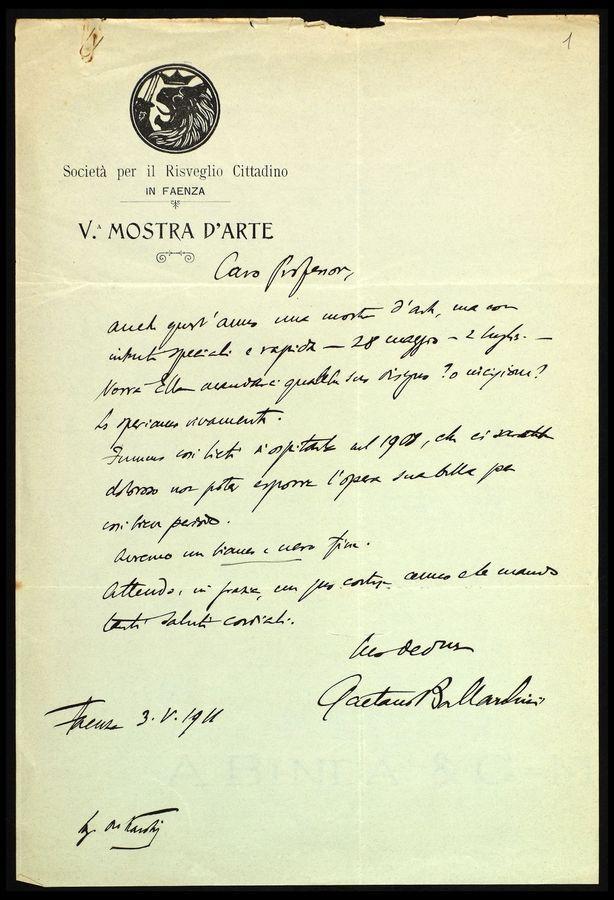 1
Società per il Risveglio Cittadino
IN FAENZA
V.ᴬ MOSTRA D'ARTE
Caro Professor,
anche quest'anno una mostra d'arte, ma con
intenti speciali e rapida — 28 maggio - 2 luglio. —
Vorrà Ella mandarci qualche suo disegno? o incisione?
Lo speriamo vivamente.
Fummo così lieti d'ospitarla nel 1908, che ci sarebbe
doloroso non poter esporre l'opera sua bella per
così breve periodo.
Avremo un bianco e nero fine.
Attendo, in grazia, un suo cortese cenno e le mando
tanti saluti cordiali.
Suo dev.
Gaetano Ballardini
Faenza 3. V. 1911